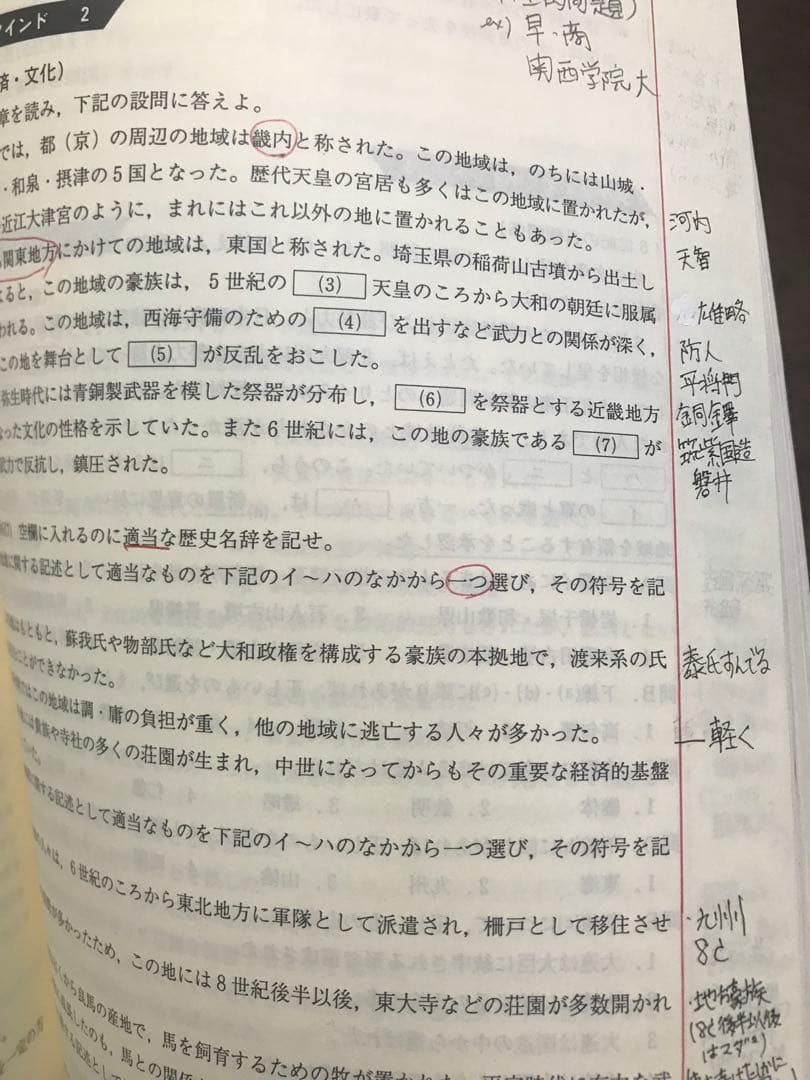 インド 2
ex) 早・商
関西学院大
済・文化)
章を読み，下記の設問に答えよ。
では，都（京）の周辺の地域は畿内と称された。この地域は，のちには山城・
・和泉・摂津の5国となった。歴代天皇の宮居も多くはこの地域に置かれたが，
近江大津宮のように，まれにはこれ以外の地に置かれることもあった。
河内
天智
関東地方にかけての地域は，東国と称された。埼玉県の稲荷山古墳から出土し
よると，この地域の豪族は，5世紀の (3) 天皇のころから大和の朝廷に服属
雄略
われる。この地域は，西海守備のための (4) を出すなど武力との関係が深く，
防人
この地を舞台として (5) が反乱をおこした。
平将門
弥生時代には青銅製武器を模した祭器が分布し， (6) を祭器とする近畿地方
銅鐸
なった文化の性格を示していた。また6世紀には，この地の豪族である (7) が
筑紫国造
磐井
武力で反抗し，鎮圧された。
空欄に入れるのに適当な歴史名辞を記せ。
に関する記述として適当なものを下記のイ～ハのなかから一つ選び，その符号を記
はもともと，蘇我氏や物部氏など大和政権を構成する豪族の本拠地で，渡来系の氏
秦氏すんでる
ことができなかった。
ではこの地域は調・庸の負担が重く，他の地域に逃亡する人々が多かった。
軽く
には貴族や寺社の多くの荘園が生まれ，中世になってからもその重要な経済的基盤
に関する記述として適当なものを下記のイ～ハのなかから一つ選び，その符号を記
人々は，6世紀のころから東北地方に軍隊として派遣され，柵戸として移住させ
・九州
8C
が多かったため，この地には8世紀後半以後，東大寺などの荘園が多数開かれ
・地方豪族
(8C後半以後
はマダ
から良馬の産地で，馬を飼育するための牧が置かれ
したのも，馬との関係